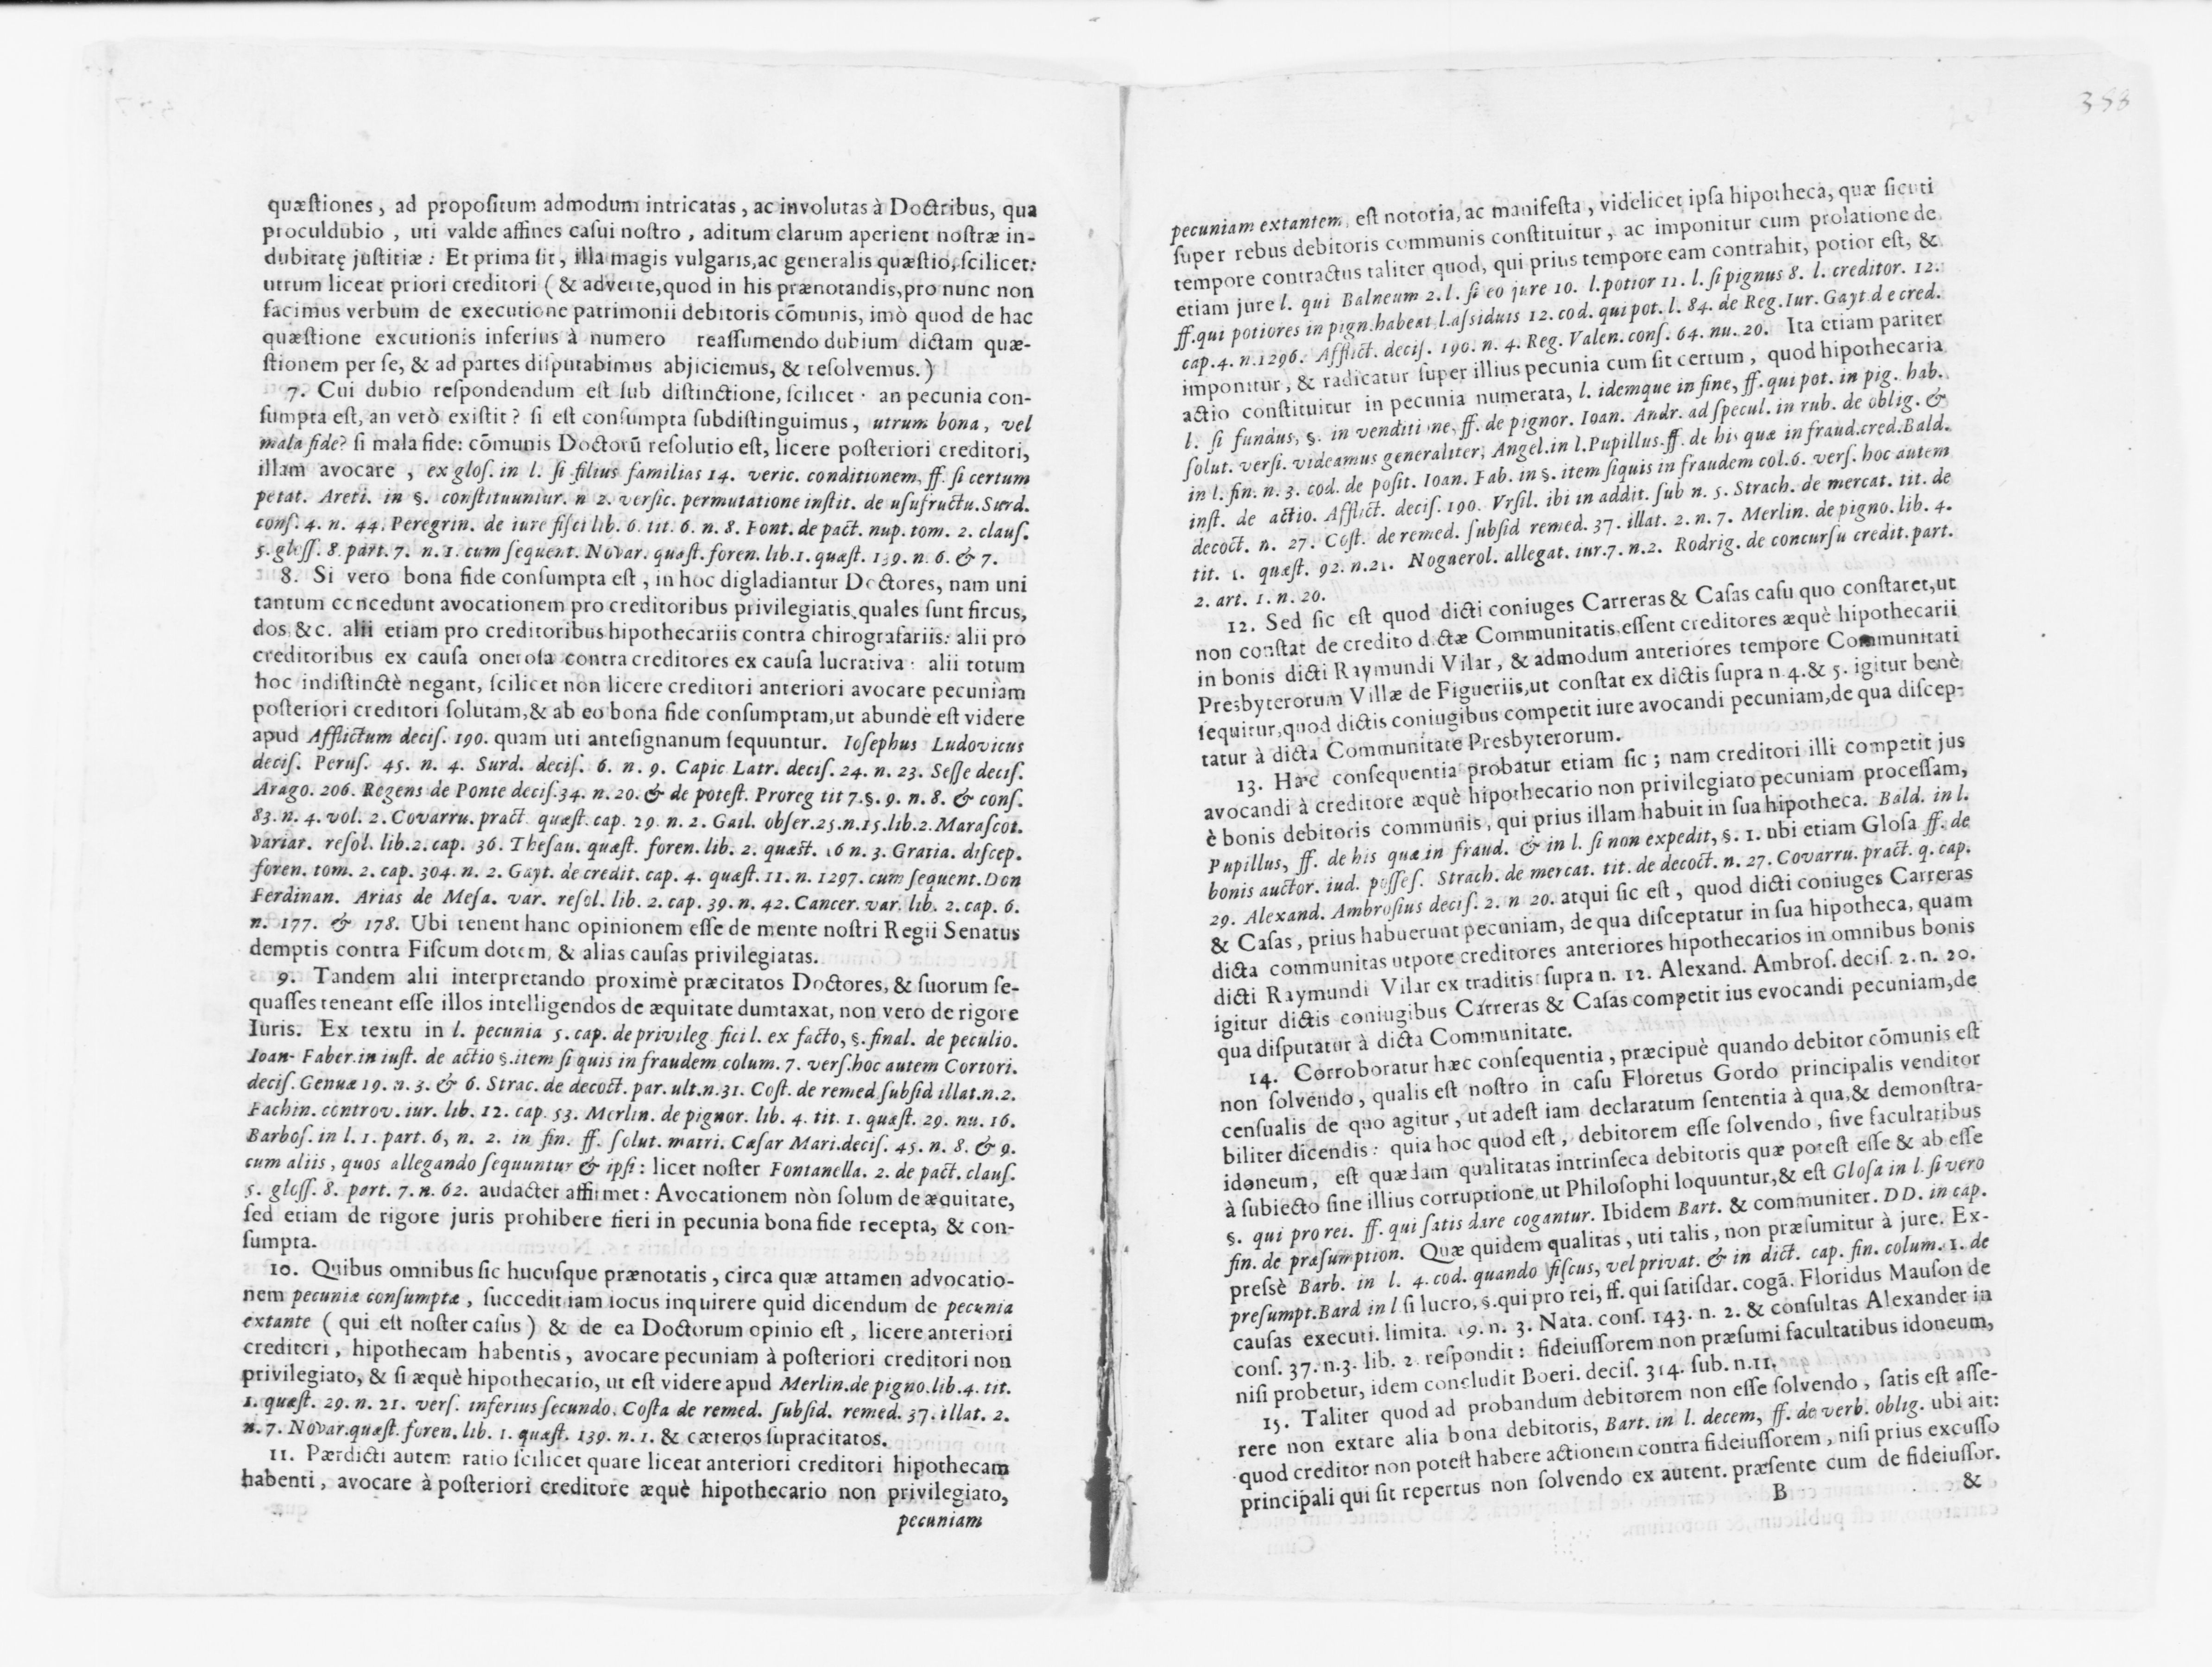 quæstiones, ad propositum admodum intricatas, ac involutas à Doctribus, qua
proculdubio, uti valde affines casui nostro, aditum clarum aperient nostræ in-
dubitatę justitiæ: Et prima sit, illa magis vulgaris, ac generalis quæstio, scilicet:
utrum liceat priori creditori (& adverte, quod in his prænotandis, pro nunc non
facimus verbum de executione patrimonii debitoris cõmunis, imò quod de hac
quæstione excutionis inferius à numero reassumendo dubium dictam quæ-
stionem per se, & ad partes disputabimus abjiciemus, & resolvemus.)
7. Cui dubio respondendum est sub distinctione, scilicet · an pecunia con-
sumpta est, an verò existit? si est consumpta subdistinguimus, utrum bona, vel
mala fide? si mala fide: cõmunis Doctorũ resolutio est, licere posteriori creditori,
illam avocare, ex glos. in l. si filius familias 14. veric. conditionem, ff. si certum
petat. Areti. in §. constituuniur. n 2. versic. permutatione instit. de usufructu. Surd.
cons. 4. n. 44. Peregrin. de iure fisci lib. 6. tit. 6. n. 8. Font. de pact. nup. tom. 2. claus.
5. gloss. 8. part. 7. n. 1. cum sequent. Novar. quæst. foren. lib. 1. quæst. 139. n. 6. & 7.
8. Si vero bona fide consumpta est, in hoc digladiantur Doctores, nam uni
tantum concedunt avocationem pro creditoribus privilegiatis, quales sunt fircus,
dos, &c. alii etiam pro creditoribus hipothecariis contra chirografariis: alii pro
creditoribus ex causa onerosa contra creditores ex causa lucrativa: alii totum
hoc indistinctè negant, scilicet non licere creditori anteriori avocare pecuniam
posteriori creditori solutam, & ab eo bona fide consumptam, ut abundè est videre
apud Afflictum decis. 190. quam uti antesignanum sequuntur. Iosephus Ludovicus
decis. Perus. 45. n. 4. Surd. decis. 6. n. 9. Capic Latr. decis. 24. n. 23. Sesse decis.
Arago. 206. Regens de Ponte decis. 34. n. 20. & de potest. Proreg tit 7. §. 9. n. 8. & cons.
83. n. 4. vol. 2. Covarru. pract. quæst. cap. 29. n. 2. Gail. obser. 25. n. 15. lib. 2. Marascot.
variar. resol. lib. 2. cap. 36. Thesau. quæst. foren. lib. 2. quæst. 16 n. 3. Gratia. discep.
foren. tom. 2. cap. 304. n. 2. Gayt. de credit. cap. 4. quæst. 11. n. 1297. cum sequent. Don
Ferdinan. Arias de Mesa. var. resol. lib. 2. cap. 39. n. 42. Cancer. var. lib. 2. cap. 6.
n. 177. & 178. Ubi tenent hanc opinionem esse de mente nostri Regii Senatus
demptis contra Fiscum dotem, & alias causas privilegiatas.
9. Tandem alii interpretando proximè præcitatos Doctores, & suorum se-
quasses teneant esse illos intelligendos de æquitate dumtaxat, non vero de rigore
Iuris. Ex textu in l. pecunia 5. cap. de privileg. fici l. ex facto, §. final. de peculio.
Ioan- Faber. in iust. de actio §. item si quis in fraudem colum. 7. vers. hoc autem Cortori.
decis. Genuæ 19. n. 3. & 6. Strac. de decoct. par. ult. n. 31. Cost. de remed subsid illat. n. 2.
Fachin. controv. iur. lib. 12. cap. 53. Merlin. de pignor. lib. 4. tit. 1. quæst. 29. nu. 16.
Barbos. in l. 1. part. 6, n. 2. in fin. ff. solut. matri. Cæsar Mari. decis. 45. n. 8. & 9.
cum aliis, quos allegando sequuntur & ipsi: licet noster Fontanella. 2. de pact. claus.
5. gloss. 8. part. 7. n. 62. audacter affirmet: Avocationem nòn solum de æquitate,
sed etiam de rigore juris prohibere fieri in pecunia bona fide recepta, & con-
sumpta.
10. Quibus omnibus sic hucusque prænotatis, circa quæ attamen advocatio-
nem pecuniæ consumptæ, succedit iam locus inquirere quid dicendum de pecunia
extante (qui est noster casus) & de ea Doctorum opinio est, licere anteriori
creditori, hipothecam habentis, avocare pecuniam à posteriori creditori non
privilegiato, & si æquè hipothecario, ut est videre apud Merlin. de pigno. lib. 4. tit.
1. quæst. 29. n. 21. vers. inferius secundo. Costa de remed. subsid. remed. 37. illat. 2.
n. 7. Novar. quæst. foren. lib. 1. quæst. 139. n. 1. & cæteros supracitatos.
11. Pærdicti autem ratio scilicet quare liceat anteriori creditori hipothecam
habenti, avocare à posteriori creditore æquè hipothecario non privilegiato,
pecuniam
358
pecuniam extantem, est notoria, ac manifesta, videlicet ipsa hipothecà, quæ sicuti
super rebus debitoris communis constituitur, ac imponitur cum prolatione de
tempore contractus taliter quod, qui prius tempore eam contrahit, potior est, &
etiam jure l. qui Balneum 2. l. si eo jure 10. l. potior 11. l. si pignus 8. l. creditor. 12.
ff. qui potiores in pign. habeat l. assiduis 12. cod. qui pot. l. 84. de Reg. Iur. Gayt de cred.
cap. 4. n. 1296. Afflict. decis. 190. n. 4. Reg. Valen. cons. 64. nu. 20. Ita etiam pariter
imponitur, & radicatur super illius pecunia cum sit certum, quod hipothecaria
actio constituitur in pecunia numerata, l. idemque in fine, ff. qui pot. in pig. hab.
l. si fundus, §. in venditione, ff. de pignor. Ioan. Andr. ad specul. in rub. de oblig. &
solut. versi. videamus generaliter, Angel. in l. Pupillus. ff. de his quæ in fraud. cred. Bald.
in l. fin. n. 3. cod. de posit. Ioan. Fab. in §. item siquis in fraudem col. 6. vers. hoc autem
inst. de actio. Afflict. decis. 190. Vrsil. ibi in addit. sub n. 5. Strach. de mercat. tit. de
decoct. n. 27. Cost. de remed. subsid remed. 37. illat. 2. n. 7. Merlin. de pigno. lib. 4.
tit. 1. quæst. 92. n. 21. Noguerol. allegat. iur. 7. n. 2. Rodrig. de concursu credit. part.
2. art. 1. n. 20.
12. Sed sic est quod dicti coniuges Carreras & Casas casu quo constaret, ut
non constat de credito dictæ Communitatis, essent creditores æquè hipothecarii
in bonis dicti Raymundi Vilar, & admodum anteriores tempore Communitati
Presbyterorum Villæ de Figueriis, ut constat ex dictis supra n 4. & 5. igitur benè
sequitur, quod dictis coniugibus competit iure avocandi pecuniam, de qua discep-
tatur à dicta Communitate Presbyterorum.
13. Hæc consequentia probatur etiam sic; nam creditori illi competit jus
avocandi à creditore æquè hipothecario non privilegiato pecuniam processam,
è bonis debitoris communis, qui prius illam habuit in sua hipotheca. Bald. in l.
Pupillus, ff. de his quæ in fraud. & in l. si non expedit, §. 1. ubi etiam Glosa ff. de
bonis auctor. iud. posses. Strach. de mercat. tit. de decoct. n. 27. Covarru. pract. q. cap.
29. Alexand. Ambrosius decis. 2. n 20. atqui sic est, quod dicti coniuges Carreras
& Casas, prius habuerunt pecuniam, de qua disceptatur in sua hipotheca, quam
dicta communitas utpote creditores anteriores hipothecarios in omnibus bonis
dicti Raymundi Vilar ex traditis supra n. 12. Alexand. Ambros. decis. 2. n. 20.
igitur dictis coniugibus Carreras & Casas competit ius evocandi pecuniam, de
qua disputatur à dicta Communitate.
14. Corroboratur hæc consequentia, præcipuè quando debitor cõmunis est
non solvendo, qualis est nostro in casu Floretus Gordo principalis venditor
censualis de quo agitur, ut adest iam declaratum sententia à qua, & demonstra-
biliter dicendis: quia hoc quod est, debitorem esse solvendo, sive facultatibus
idoneum, est quædam qualitatas intrinseca debitoris quæ potest esse & ab esse
à subiecto sine illius corruptione, ut Philosophi loquuntur, & est Glosa in l. si vero
§. qui pro rei. ff. qui satis dare cogantur. Ibidem Bart. & communiter. DD. in cap.
fin. de præsumption. Quæ quidem qualitas, uti talis, non præsumitur à jure. Ex-
pressè Barb. in l. 4. cod. quando fiscus, vel privat. & in dict. cap. fin. colum. 1. de
presumpt. Bard in l si lucro, §. qui pro rei, ff. qui satisdar. cogã. Floridus Mauson de
causas executi. limita. 19. n. 3. Nata. cons. 143. n. 2. & consultas Alexander in
cons. 37. n. 3. lib. 2. respondit: fideiussorem non præsumi facultatibus idoneum,
nisi probetur, idem concludit Boeri. decis. 314. sub. n. 11.
15. Taliter quod ad probandum debitorem non esse solvendo, satis est asse-
rere non extare alia bona debitoris, Bart. in l. decem, ff. de verb. oblig. ubi ait:
quod creditor non potest habere actionem contra fideiussorem, nisi prius excusso
principali qui sit repertus non solvendo ex autent. præsente cum de fideiussor.
B &